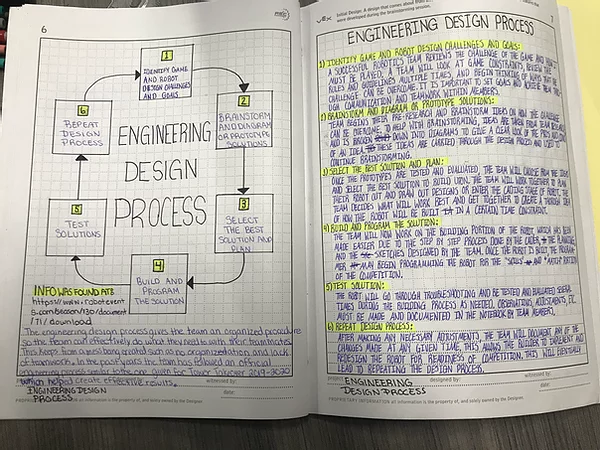 6
1
IDENTIFY GAME
AND ROBOT
DESIGN CHALLENGES
AND GOALS
2
BRAINSTORM
AND DIAGRAM
OR PROTOTYPE
SOLUTIONS
3
SELECT
THE BEST
SOLUTION AND
PLAN
4
BUILD AND
PROGRAM
THE SOLUTION
5
TEST
SOLUTIONS
6
REPEAT
DESIGN
PROCESS
ENGINEERING
DESIGN
PROCESS
INFO WAS FOUND AT:
The engineering design process gives the team an organized procedure
so the team can effectively do what they need to with their teammates.
This keeps from issues being created such as no organization and lack
of teamwork. In the past years the team has followed an official
engineering process similar to the one given for Tower Takeover 2019-2020
which helped create effective results.
witnessed by:
ENGINEERING DESIGN
PROCESS
date:
PROPRIETARY INFORMATION all information is the property of, and solely owned by the Designer.
VEX
Initial Design: A design that comes about from
were developed during the brainstorming session.
7
ENGINEERING DESIGN PROCESS
1) IDENTIFY GAME AND ROBOT DESIGN CHALLENGES AND GOALS:
A SUCCESSFUL ROBOTICS TEAM REVIEWS THE CHALLENGE OF THE GAME AND HOW IT
MUST BE PLAYED. A TEAM WILL LOOK AT GAME CONSTRAINTS, REVIEW THE
RULES AND GUIDELINES MULTIPLE TIMES, AND BEGIN THINKING OF WAYS THAT THE
CHALLENGE CAN BE OVERCOME. IT IS IMPORTANT TO SET GOALS AND
COMMUNICATION AND TEAMWORK WITHIN MEMBERS.
2) BRAINSTORM AND DIAGRAM OR PROTOTYPE SOLUTIONS:
TEAM BEGINS THEIR PRE-RESEARCH AND BRAINSTORM IDEAS ON HOW THE CHALLENGE
CAN BE OVERCOME. TO HELP WITH BRAINSTORMING, IDEAS ARE
AND IS BROKEN DOWN INTO DIAGRAMS TO GIVE A CLEAR LOOK OF THE PROS AND CONS
OF AN IDEA. THESE IDEAS ARE CARRIED THROUGH THE DESIGN PROCESS AND USED TO
CONTINUE BRAINSTORMING.
3) SELECT THE BEST SOLUTION AND PLAN:
ONCE THE PROTOTYPES ARE TESTED AND EVALUATED, THE TEAM WILL CHOOSE FROM THE IDEAS
AND SELECT THE BEST SOLUTION TO BUILD UPON. THE TEAM WILL WORK TOGETHER TO PLAN
THEIR ROBOT OUT AND DRAW OUT DESIGNS OR ENTER THE CADDING STAGE OF ROBOT. THE
TEAM DECIDES WHAT WILL WORK BEST AND GET TOGETHER TO CREATE A THOROUGH IDEA
OF HOW THE ROBOT WILL BE BUILT IN A CERTAIN TIME CONSTRAINT.
4) BUILD AND PROGRAM THE SOLUTION:
THE TEAM WILL NOW WORK ON THE BUILDING PORTION OF THE ROBOT WHICH HAS BEEN
MADE EASIER DUE TO THE STEP BY STEP PROCESS DONE BY THE CADER, THE PLANNING
AND THE SKETCHES DESIGNED BY THE TEAM. ONCE THE ROBOT IS BUILT THE PROGRAM
MER MAY BEGIN PROGRAMMING THE ROBOT FOR THE "SKILLS" AND MATCH PORTION
OF THE COMPETITION.
5) TEST SOLUTION:
THE ROBOT WILL GO THROUGH TROUBLESHOOTING AND BE TESTED AND EVALUATED SEVERAL
TIMES DURING THE BUILDING PROCESS AS NEEDED. OBSERVATIONS, ADJUSTMENTS, ETC.
MUST BE MADE AND DOCUMENTED IN THE NOTEBOOK BY TEAM MEMBERS.
6) REPEAT DESIGN PROCESS:
AFTER MAKING ANY NECESSARY ADJUSTMENTS, THE TEAM WILL DOCUMENT ANY OF THE
CHANGES MADE AT ANY GIVEN TIME. THIS ALLOWS THE BUILDERS TO IMPLEMENT AND
REDESIGN THE ROBOT FOR READINESS OF COMPETITION. THIS WILL ESSENTIALLY
LEAD TO REPEATING THE DESIGN PROCESS.
ENGINEERING
DESIGN PROCESS
designed by:
witnessed by:
date:
PROPRIETARY INFORMATION all information is the property of, and solely owned by the Designer.